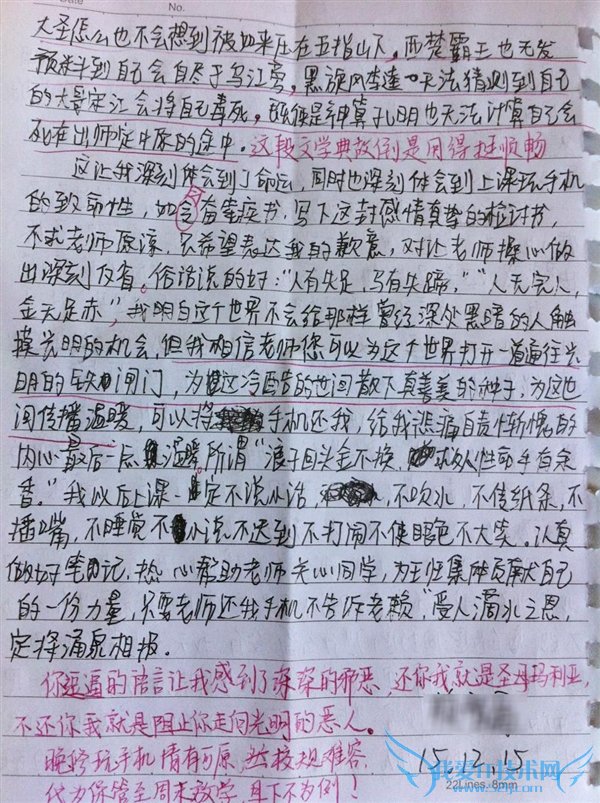 Date
No.
大圣怎么也不会想到被如来压在五指山下。西楚霸王也无发
预料到自己会自尽于乌江旁,黑旋风李逵 无法猜测到自己
的大哥宋江会将自己毒死。既使是神算孔明也无法计算自己会
死在出师定中原的途中。这段文学典故倒是用得挺顺畅
这让我深刻体会到了命运,同时也深刻体会到上课玩手机
的致命性,如 写下这封感情真挚的检讨书,
不求老师原谅,只希望表达我的歉意,对让老师操心做
出深刻反省。俗话说的好:“人有失足,马有失蹄,”“人无完人,
金无足赤”,我明白这个世界不会给那样曾经深处黑暗的人触
摸光明的机会,但我相信老师您可以为这个世界打开一道通往光
明的铁闸门,为这冷酷的世间散下真善美的种子,为这世
间传播温暖,可以将手机还我,给我悲痛自责忏愧的
内心最后一点温暖。所谓“浪子回头金不换,
香。”我以后上课一定不说小话,不吹水,不传纸条,不
插嘴,不睡觉不小说不迟到不打闹不使眼色不大笑。认真
做好笔记,热心帮助老师关心同学,为班集体贡献自己
的一份力量,只要老师还我手机不告诉老赖,“受人滴水之恩,
定将涌泉相报。
你逗逼的语言让我感到了深深的邪恶,还你我就是圣母玛利亚,
不还你我就是阻止你走向光明的恶人。
晚修玩手机情有可原 然校规难容
代为保管至周末放学,且下不为例!
15,12,15
22Lines 8mm
我爱IT技术网
www.52ij.com